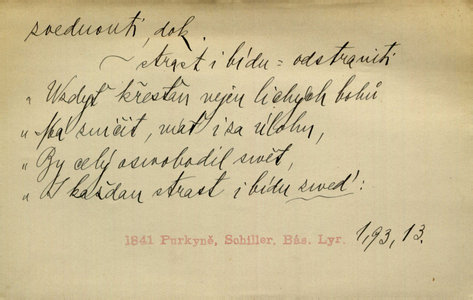 svednouti, dok.
~ strast i bídu = odstraniti
„ Wzdyť křesťan nejen lichých bohů
„ Má sničit, mať i za úlohu,
„ By celý oswobodil swět,
„ I každau strast i bídu swed':
1841 Purkyně, Schiller, Bás. Lyr. 1,93,13.